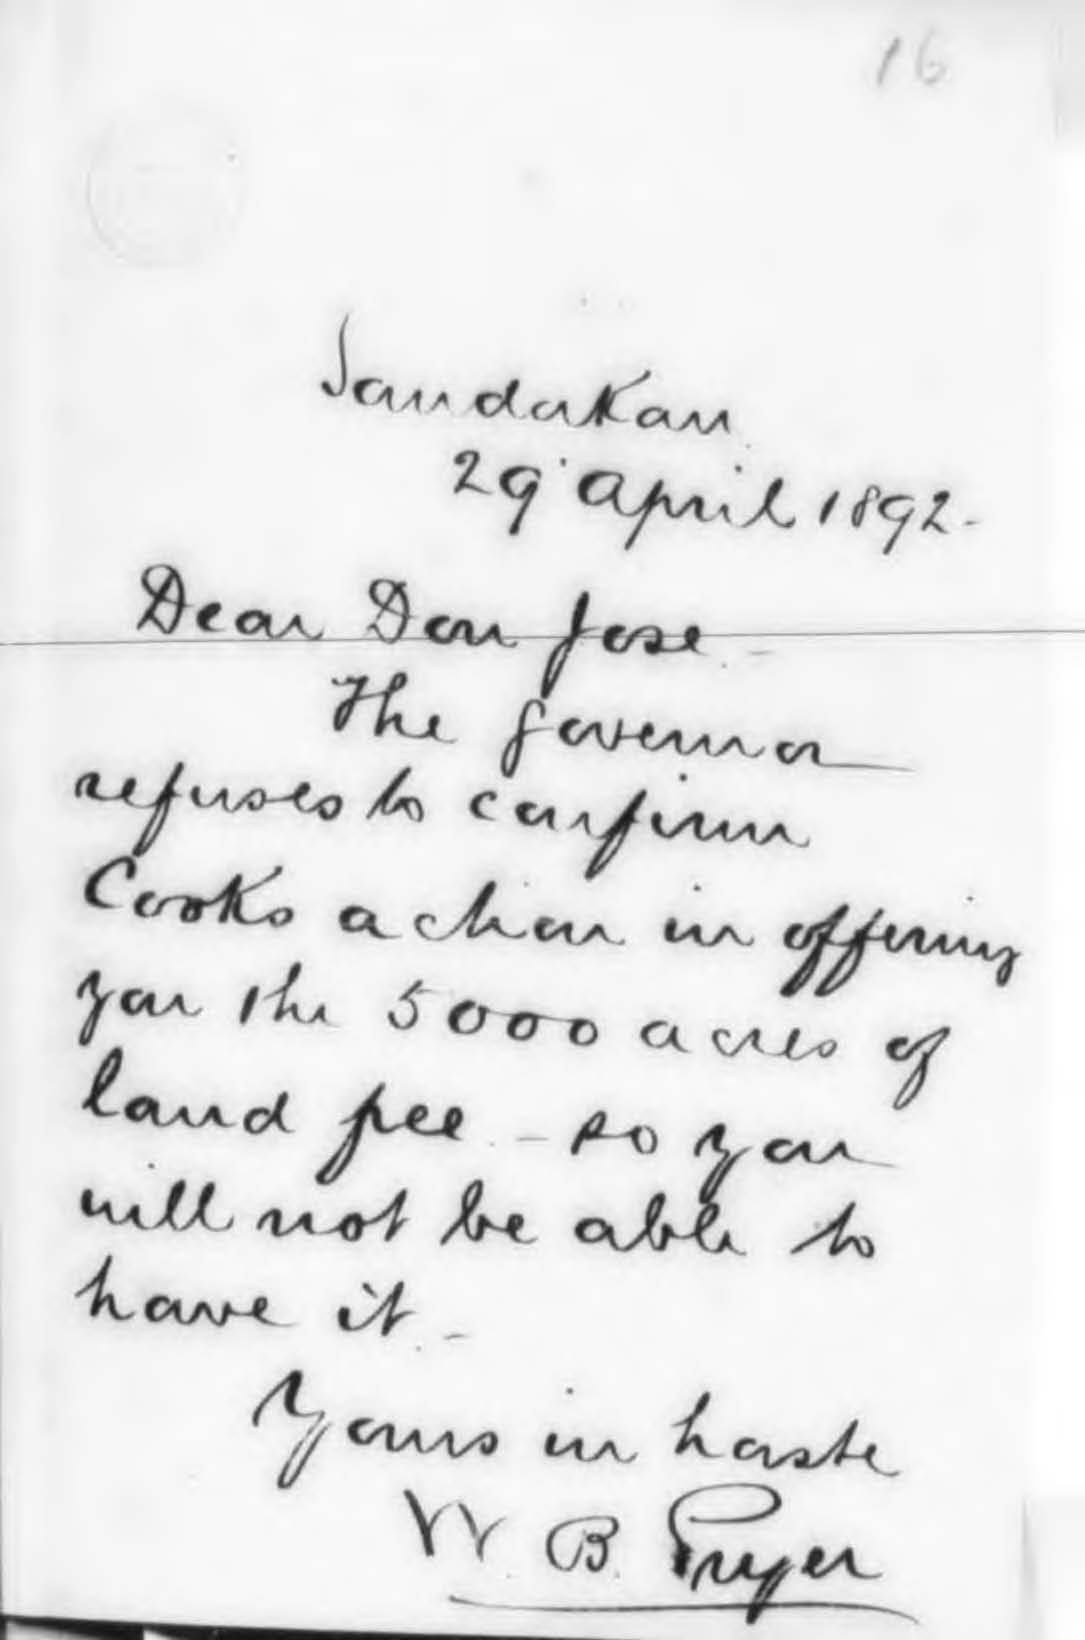 16
Sandakan
29 April 1892-
Dear Don Jose -
The Governor
refuses to confirm
Cooks action in offering
you the 5000 acres of
land free - so you
will not be able to
have it -
Yours in haste
W. B. Pryer